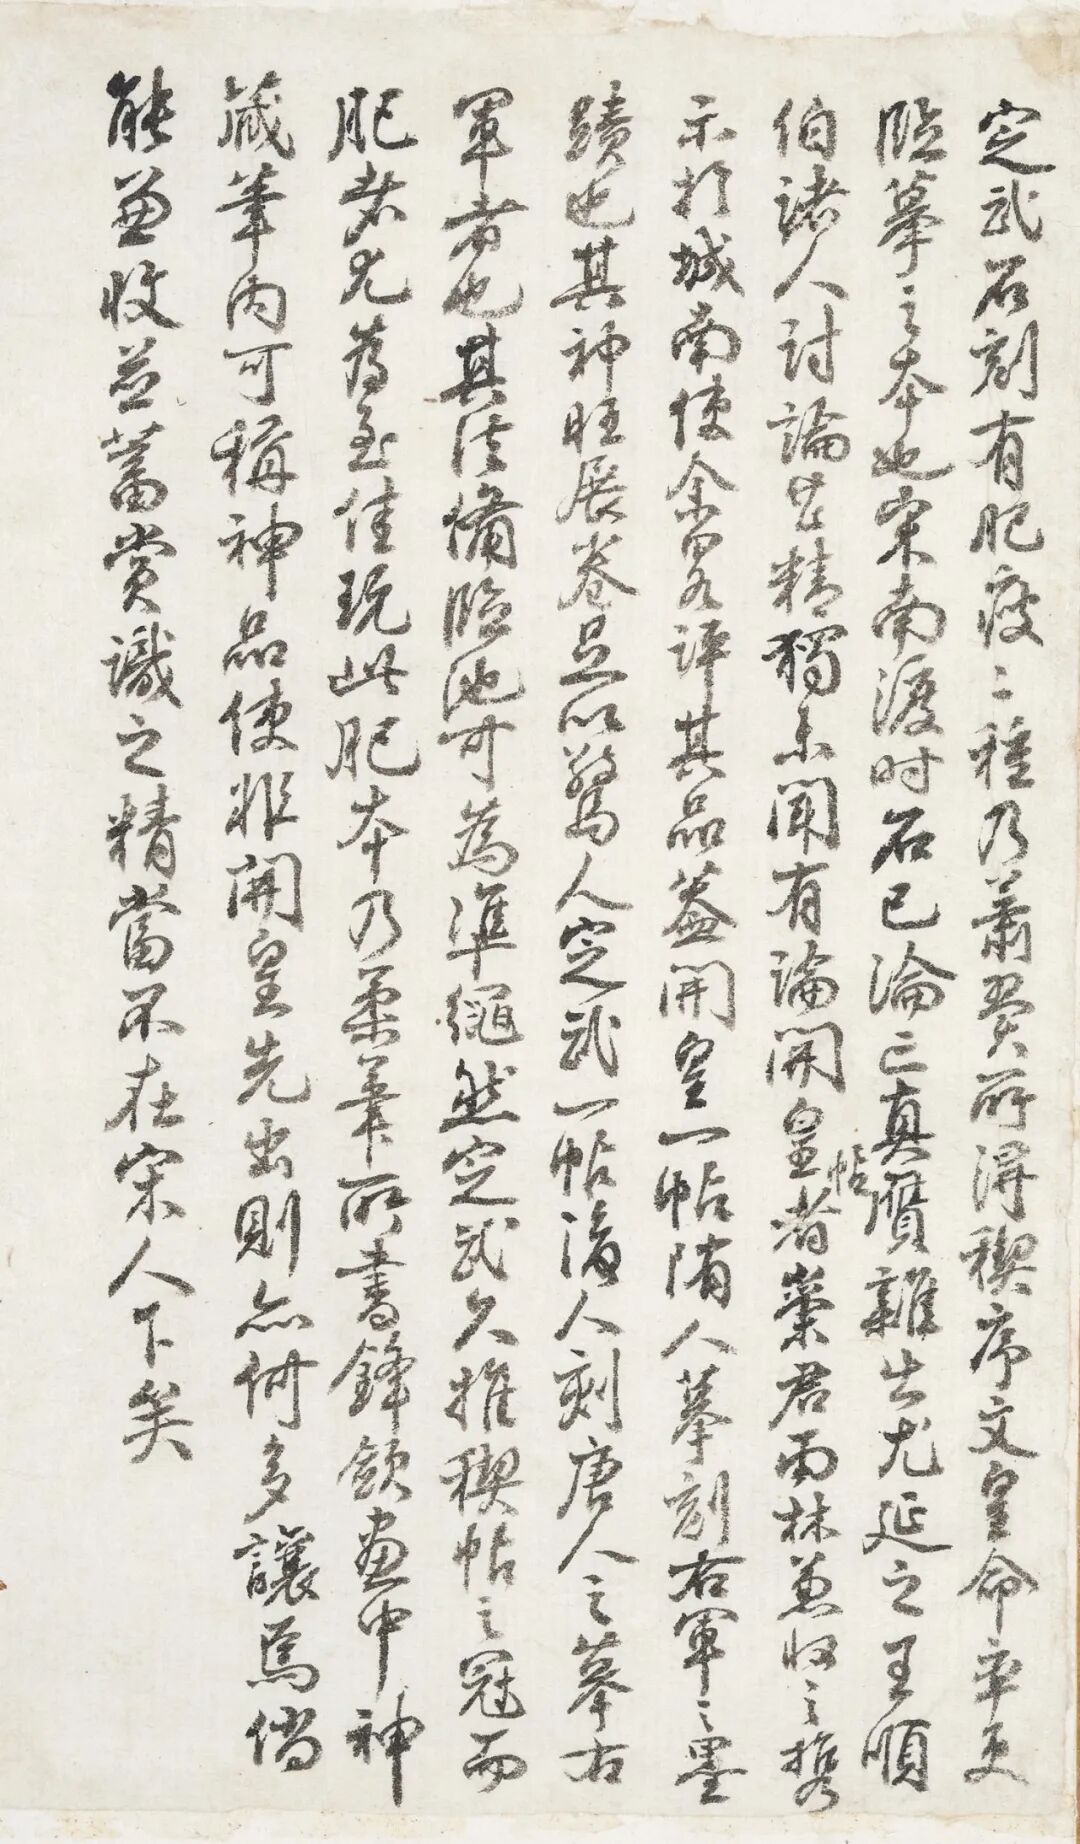 定武石刻有肥瘦二種乃蕭翼所得禊序文皇命率更
臨摹之本也宋南渡时石已淪亡真贋雜出尤延之王順
伯諸人討論甚精獨未聞有論開皇帖者蘂君雨林兼收之携
示於城南使余畧評其品蓋開皇一帖隋人摹刻右軍之墨
蹟也其神旺展卷足以驚人定武一帖後人刻唐人之摹右
軍者也其法備臨池可為準繩然定武久推禊帖之冠而
肥者尤為至佳玩此肥本乃柔筆所書鋒斂畫中神
藏筆内可稱神品使非開皇先出則亦何多讓焉倘
能兼收並蓄賞識之精當不在宋人下矣